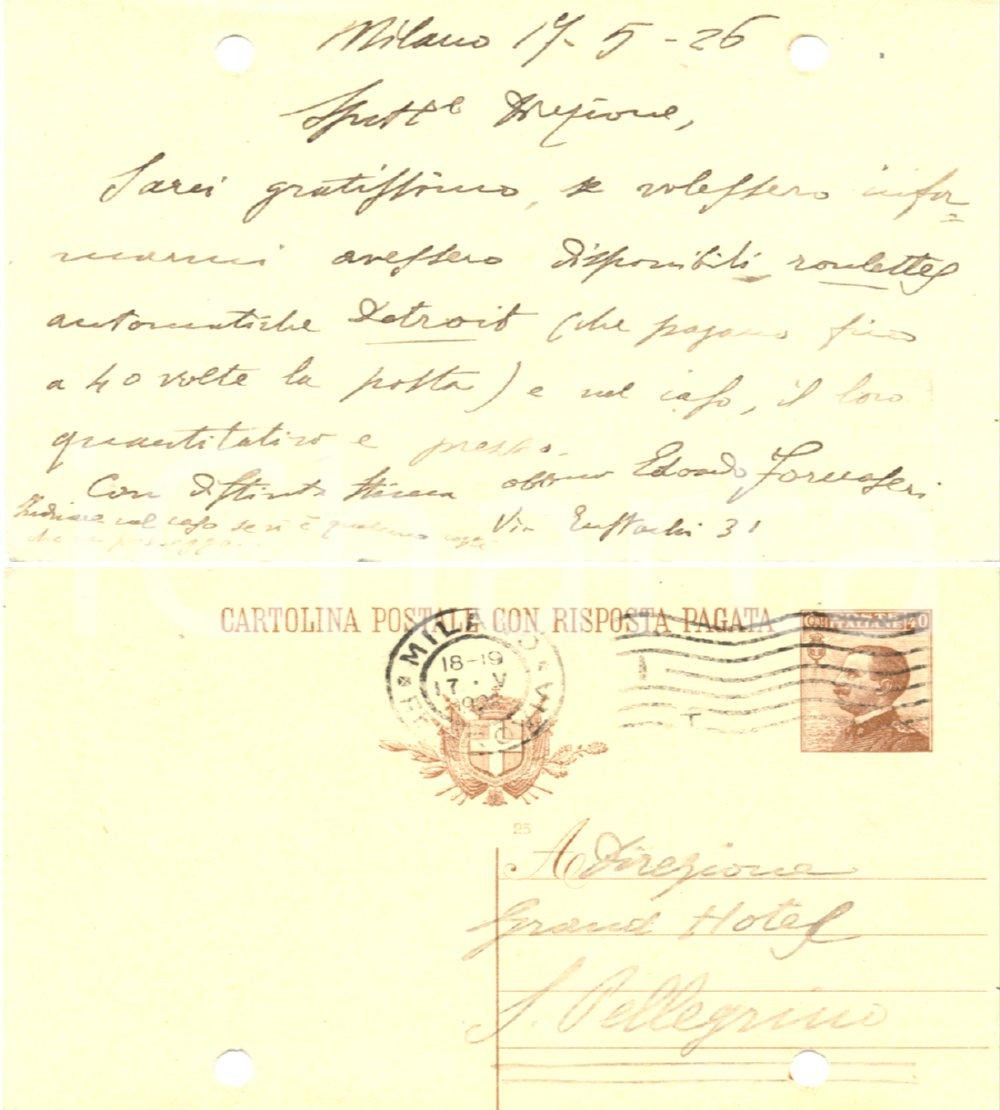 Milano 17-5-26
Spett.le Direzione,
Sarei gratissimo, se volessero infor=
marmi avessero disponibili roulettes
automatiche Detroit (che pagano fino
a 40 volte la posta) e nel caso, il loro
quantitativo e prezzo.
Con distinta stima obb.mo Edoardo
Via Eustachi 31
nel caso se vi è qualcuno
CARTOLINA POSTALE CON RISPOSTA PAGATA
POSTE
ITALIANE
C.
40
MILANO
18-19
17 · V
192
25
A Direzione
Grand Hotel
S. Pellegrino